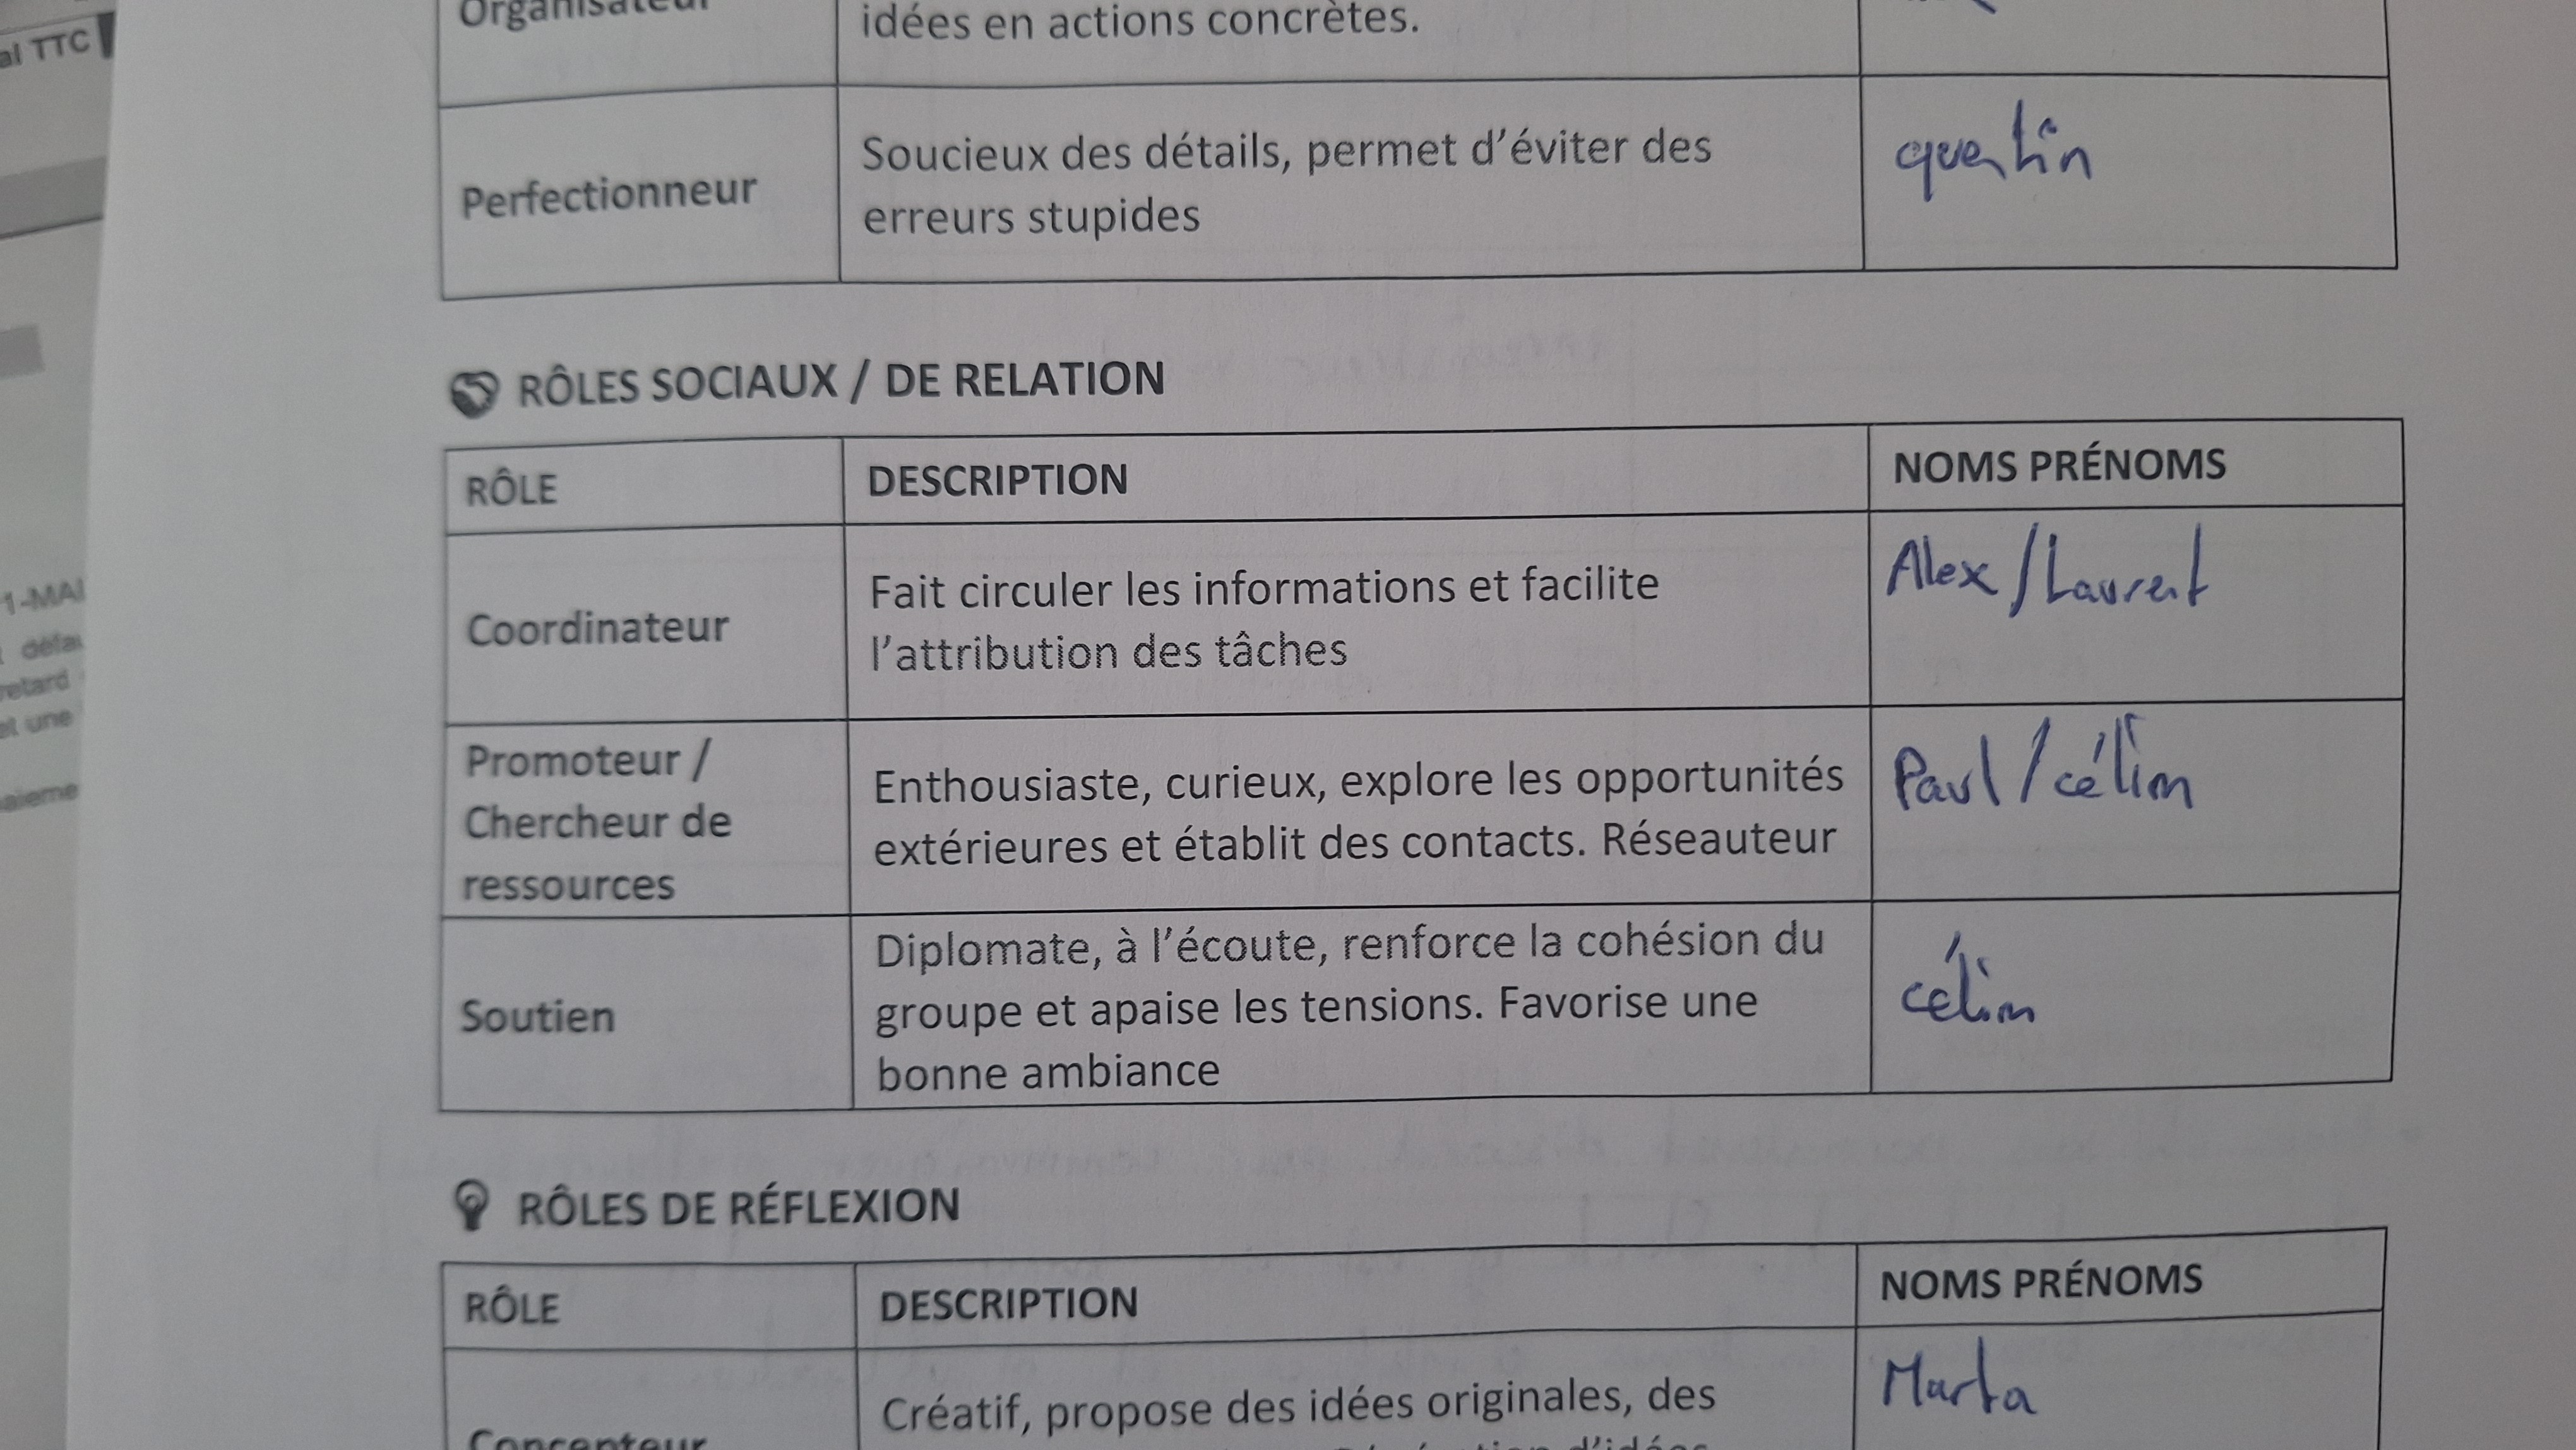 al TTC
Organisateur
idées en actions concrètes.
Perfectionneur
Soucieux des détails, permet d'éviter des
erreurs stupides
quentin
RÔLES SOCIAUX / DE RELATION
RÔLE
DESCRIPTION
NOMS PRÉNOMS
Coordinateur
Fait circuler les informations et facilite
l'attribution des tâches
Alex / Laurent
Promoteur /
Chercheur de
ressources
Enthousiaste, curieux, explore les opportunités
extérieures et établit des contacts. Réseauteur
Paul / célim
Soutien
Diplomate, à l'écoute, renforce la cohésion du
groupe et apaise les tensions. Favorise une
bonne ambiance
célim
RÔLES DE RÉFLEXION
RÔLE
DESCRIPTION
NOMS PRÉNOMS
Concepteur
Créatif, propose des idées originales, des
d'idées
Marta
1-MAI
défau
retard
et une
aieme